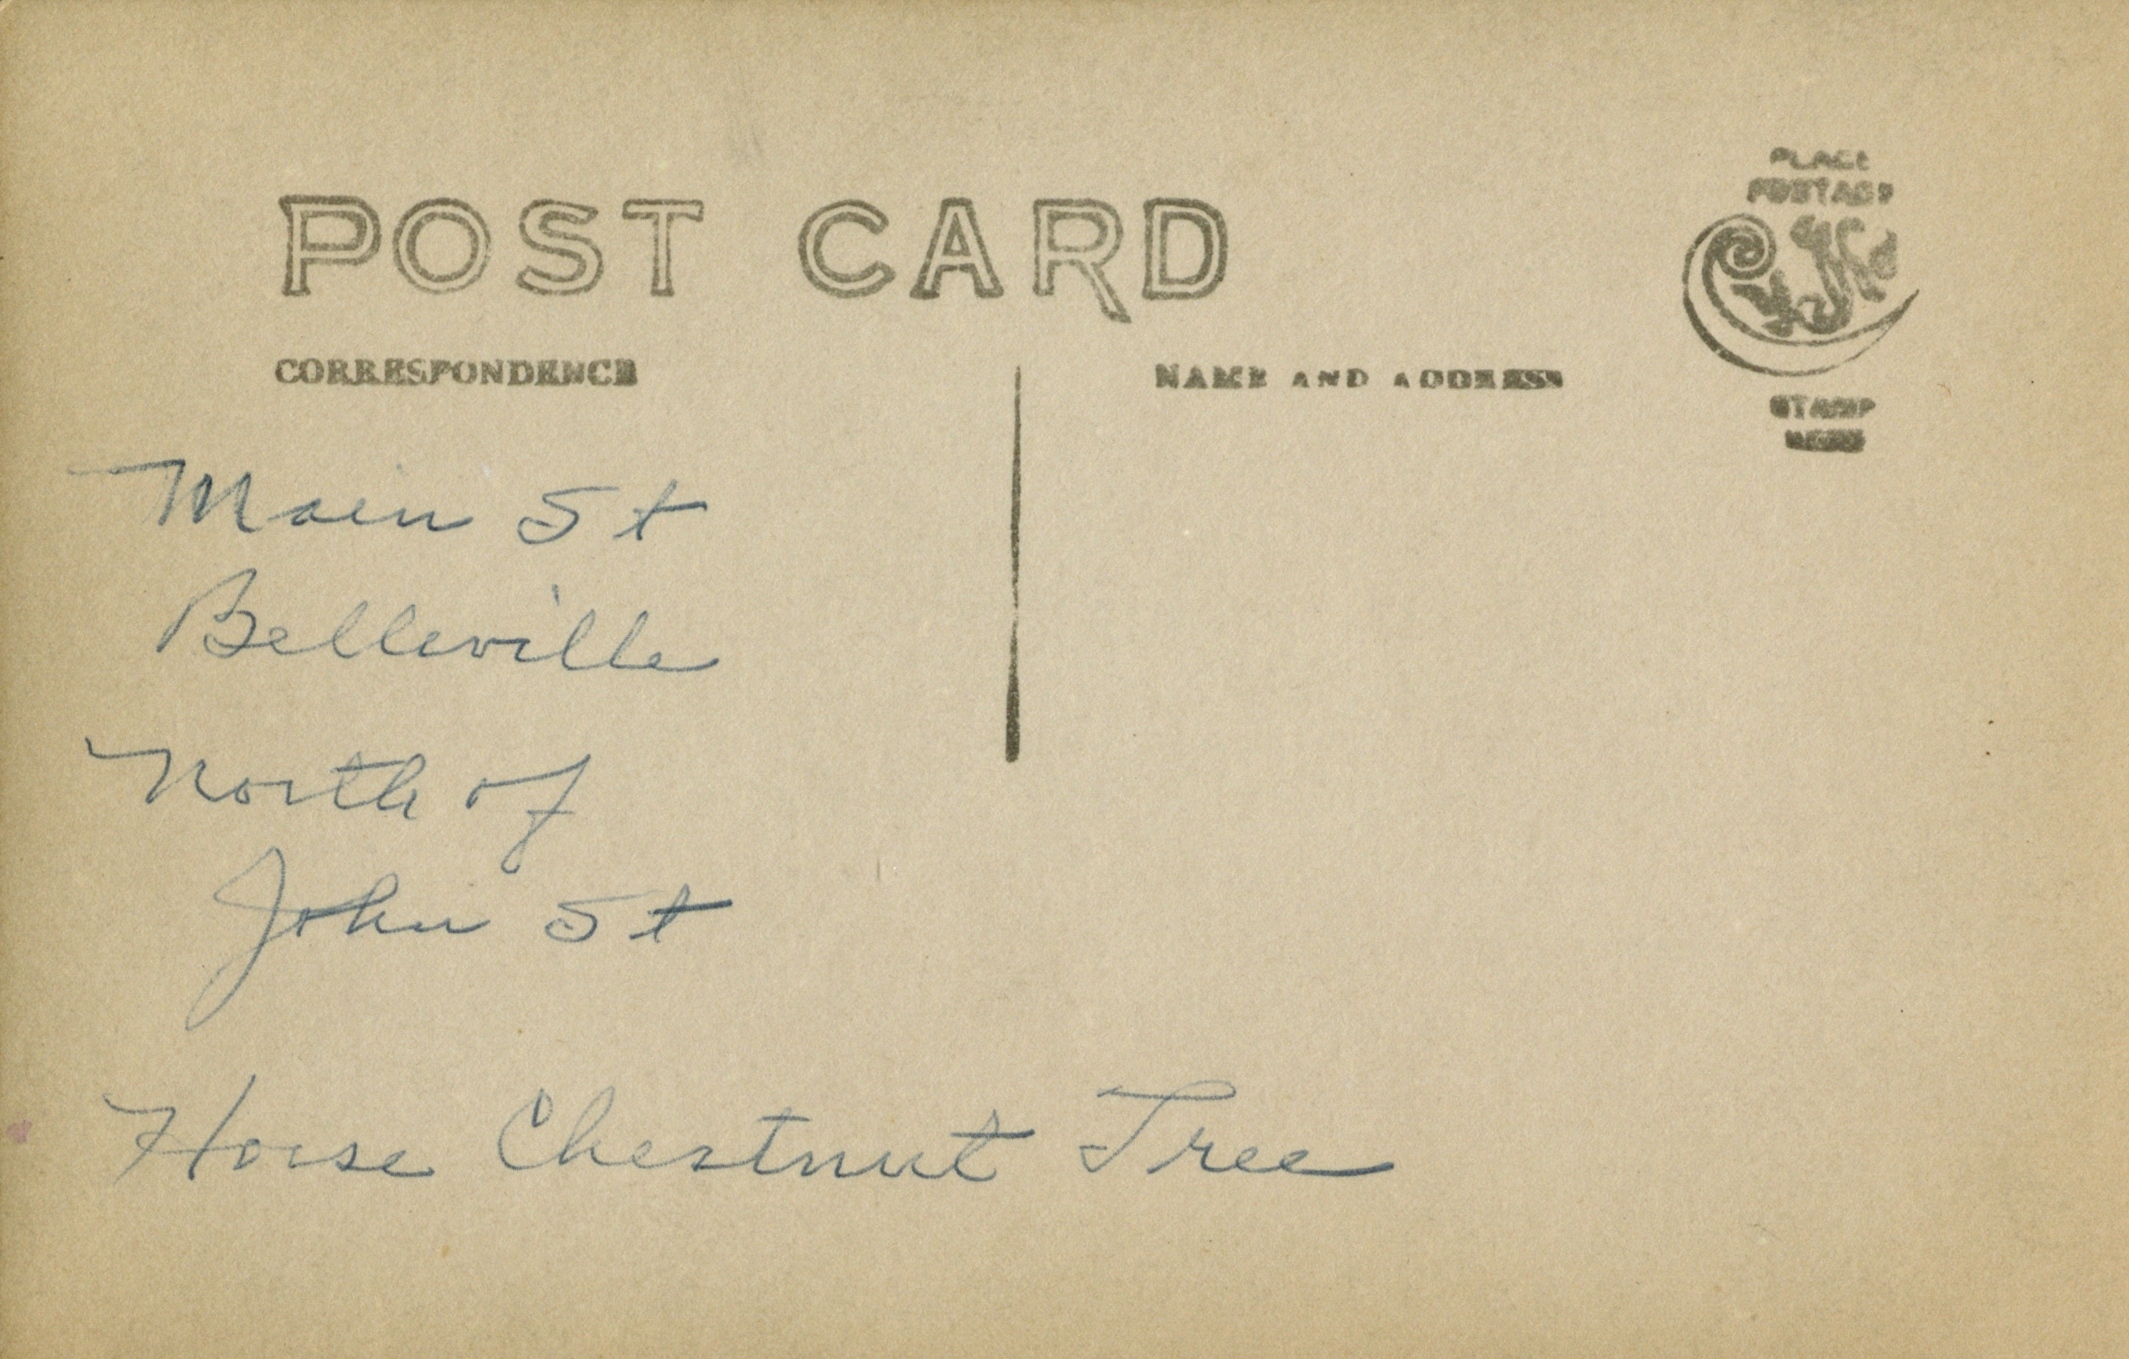 POST CARD
CORRESPONDENCE
NAME AND ADDRESS
PLACE
POSTAGE
STAMP
HERE
Main St
Belleville
North of
John St
Horse Chestnut Tree